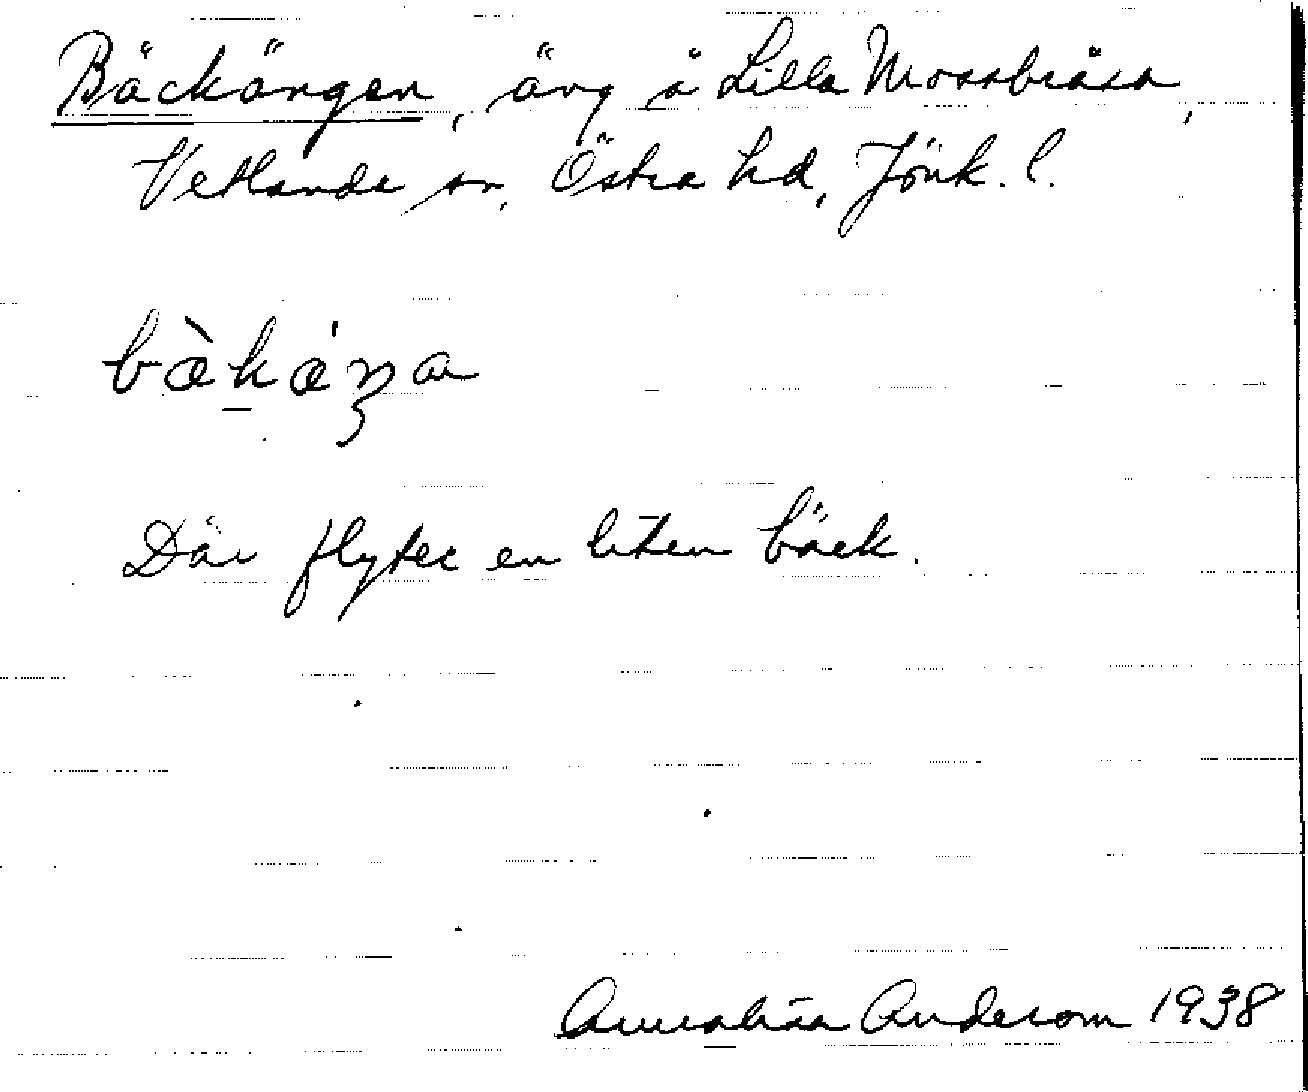 Bäckängen, äng å Lilla Mossbråsa,
Vetlanda sn, Östra hd, Jönk. l.
Där flyter en liten bäck.
Anderson 1938